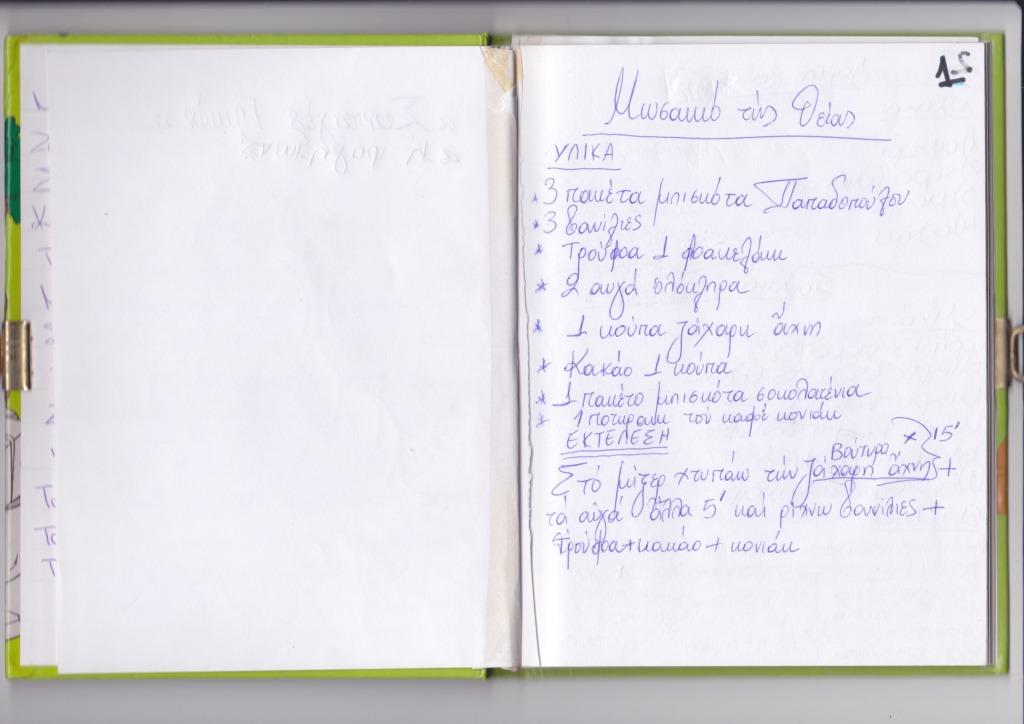 1
Μωσαικό τής Θείας
ΥΛΙΚΑ
* 3 πακέτα μπισκότα Παπαδοπούλου
* 3 βανίλιες
* Τρούφα 1 φακελάκι
* 2 αυγά ολόκληρα
* 1 κούπα ζάχαρη άχνη
* Κακάο 1 κούπα
* 1 πακέτο μπισκότα σοκολατένια
* 1 ποτηράκι τού καφέ κονιάκ
ΕΚΤΕΛΕΣΗ
Βούτυρο x 15'
Στό μίξερ χτυπάω τήν ζάχαρη άχνη +
τά αυγά άλλα 5' καί ρίχνω βανίλιες +
τρούφα + κακάο + κονιάκ